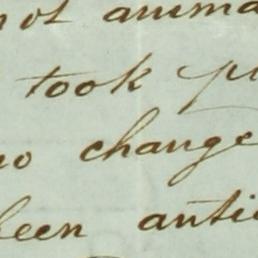 not anima
took p
no change
been anti